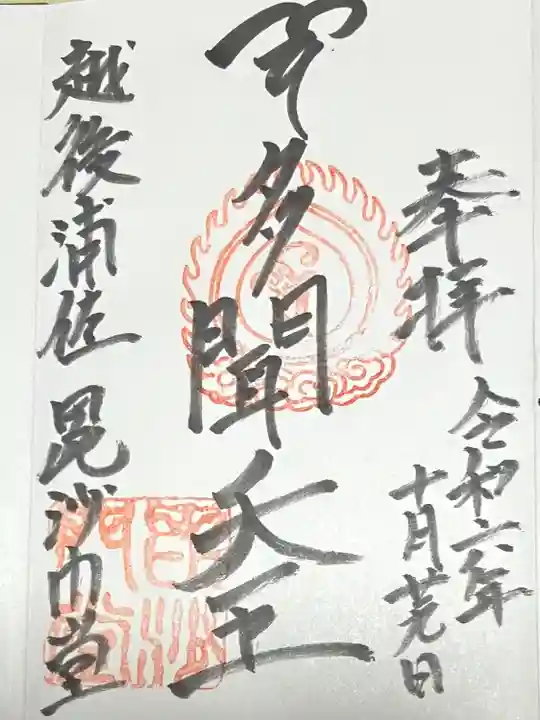 奉拝
令和六年
十月廿日
多聞天王
越後浦佐 毘沙門堂